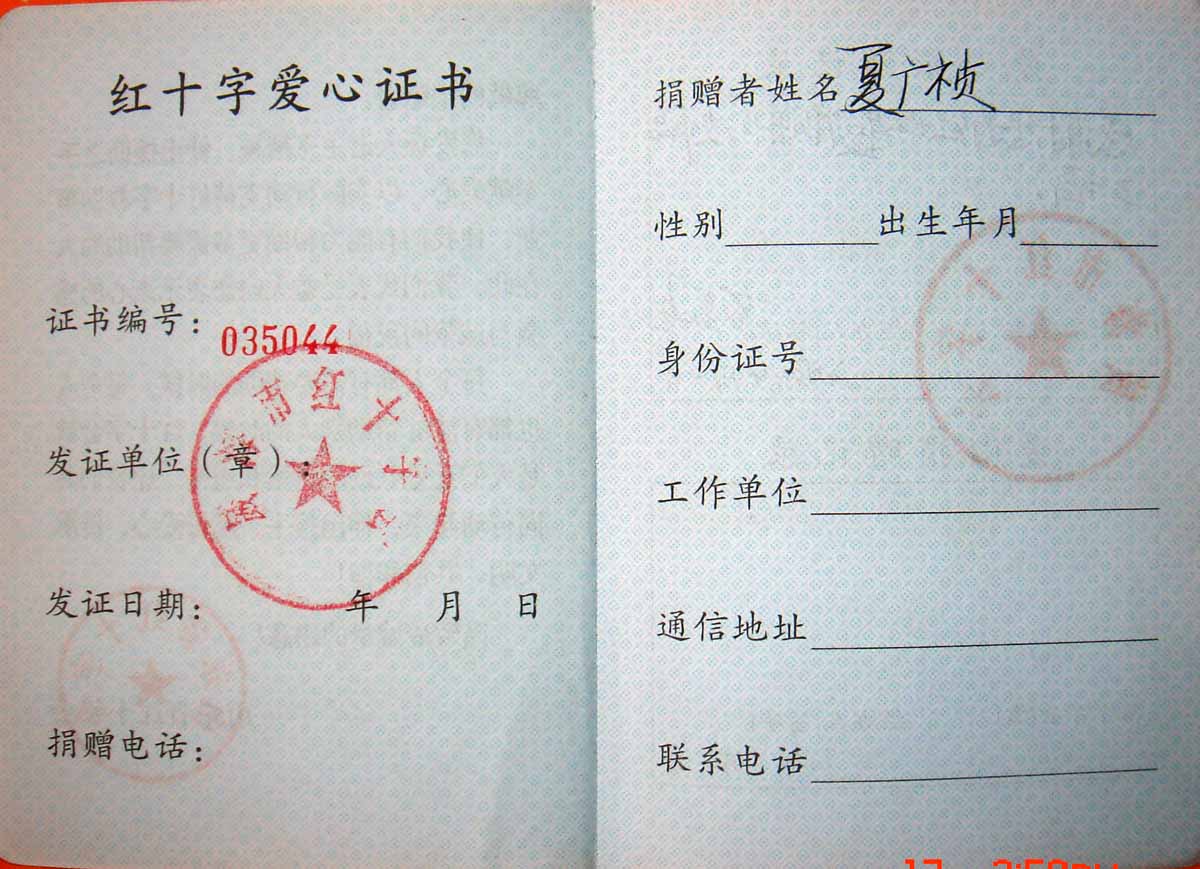 红十字爱心证书
证书编号：035044
发证单位（章）：
市红十字
发证日期： 年 月 日
捐赠电话：
捐赠者姓名 夏广祯
性别 出生年月
身份证号
工作单位
通信地址
联系电话